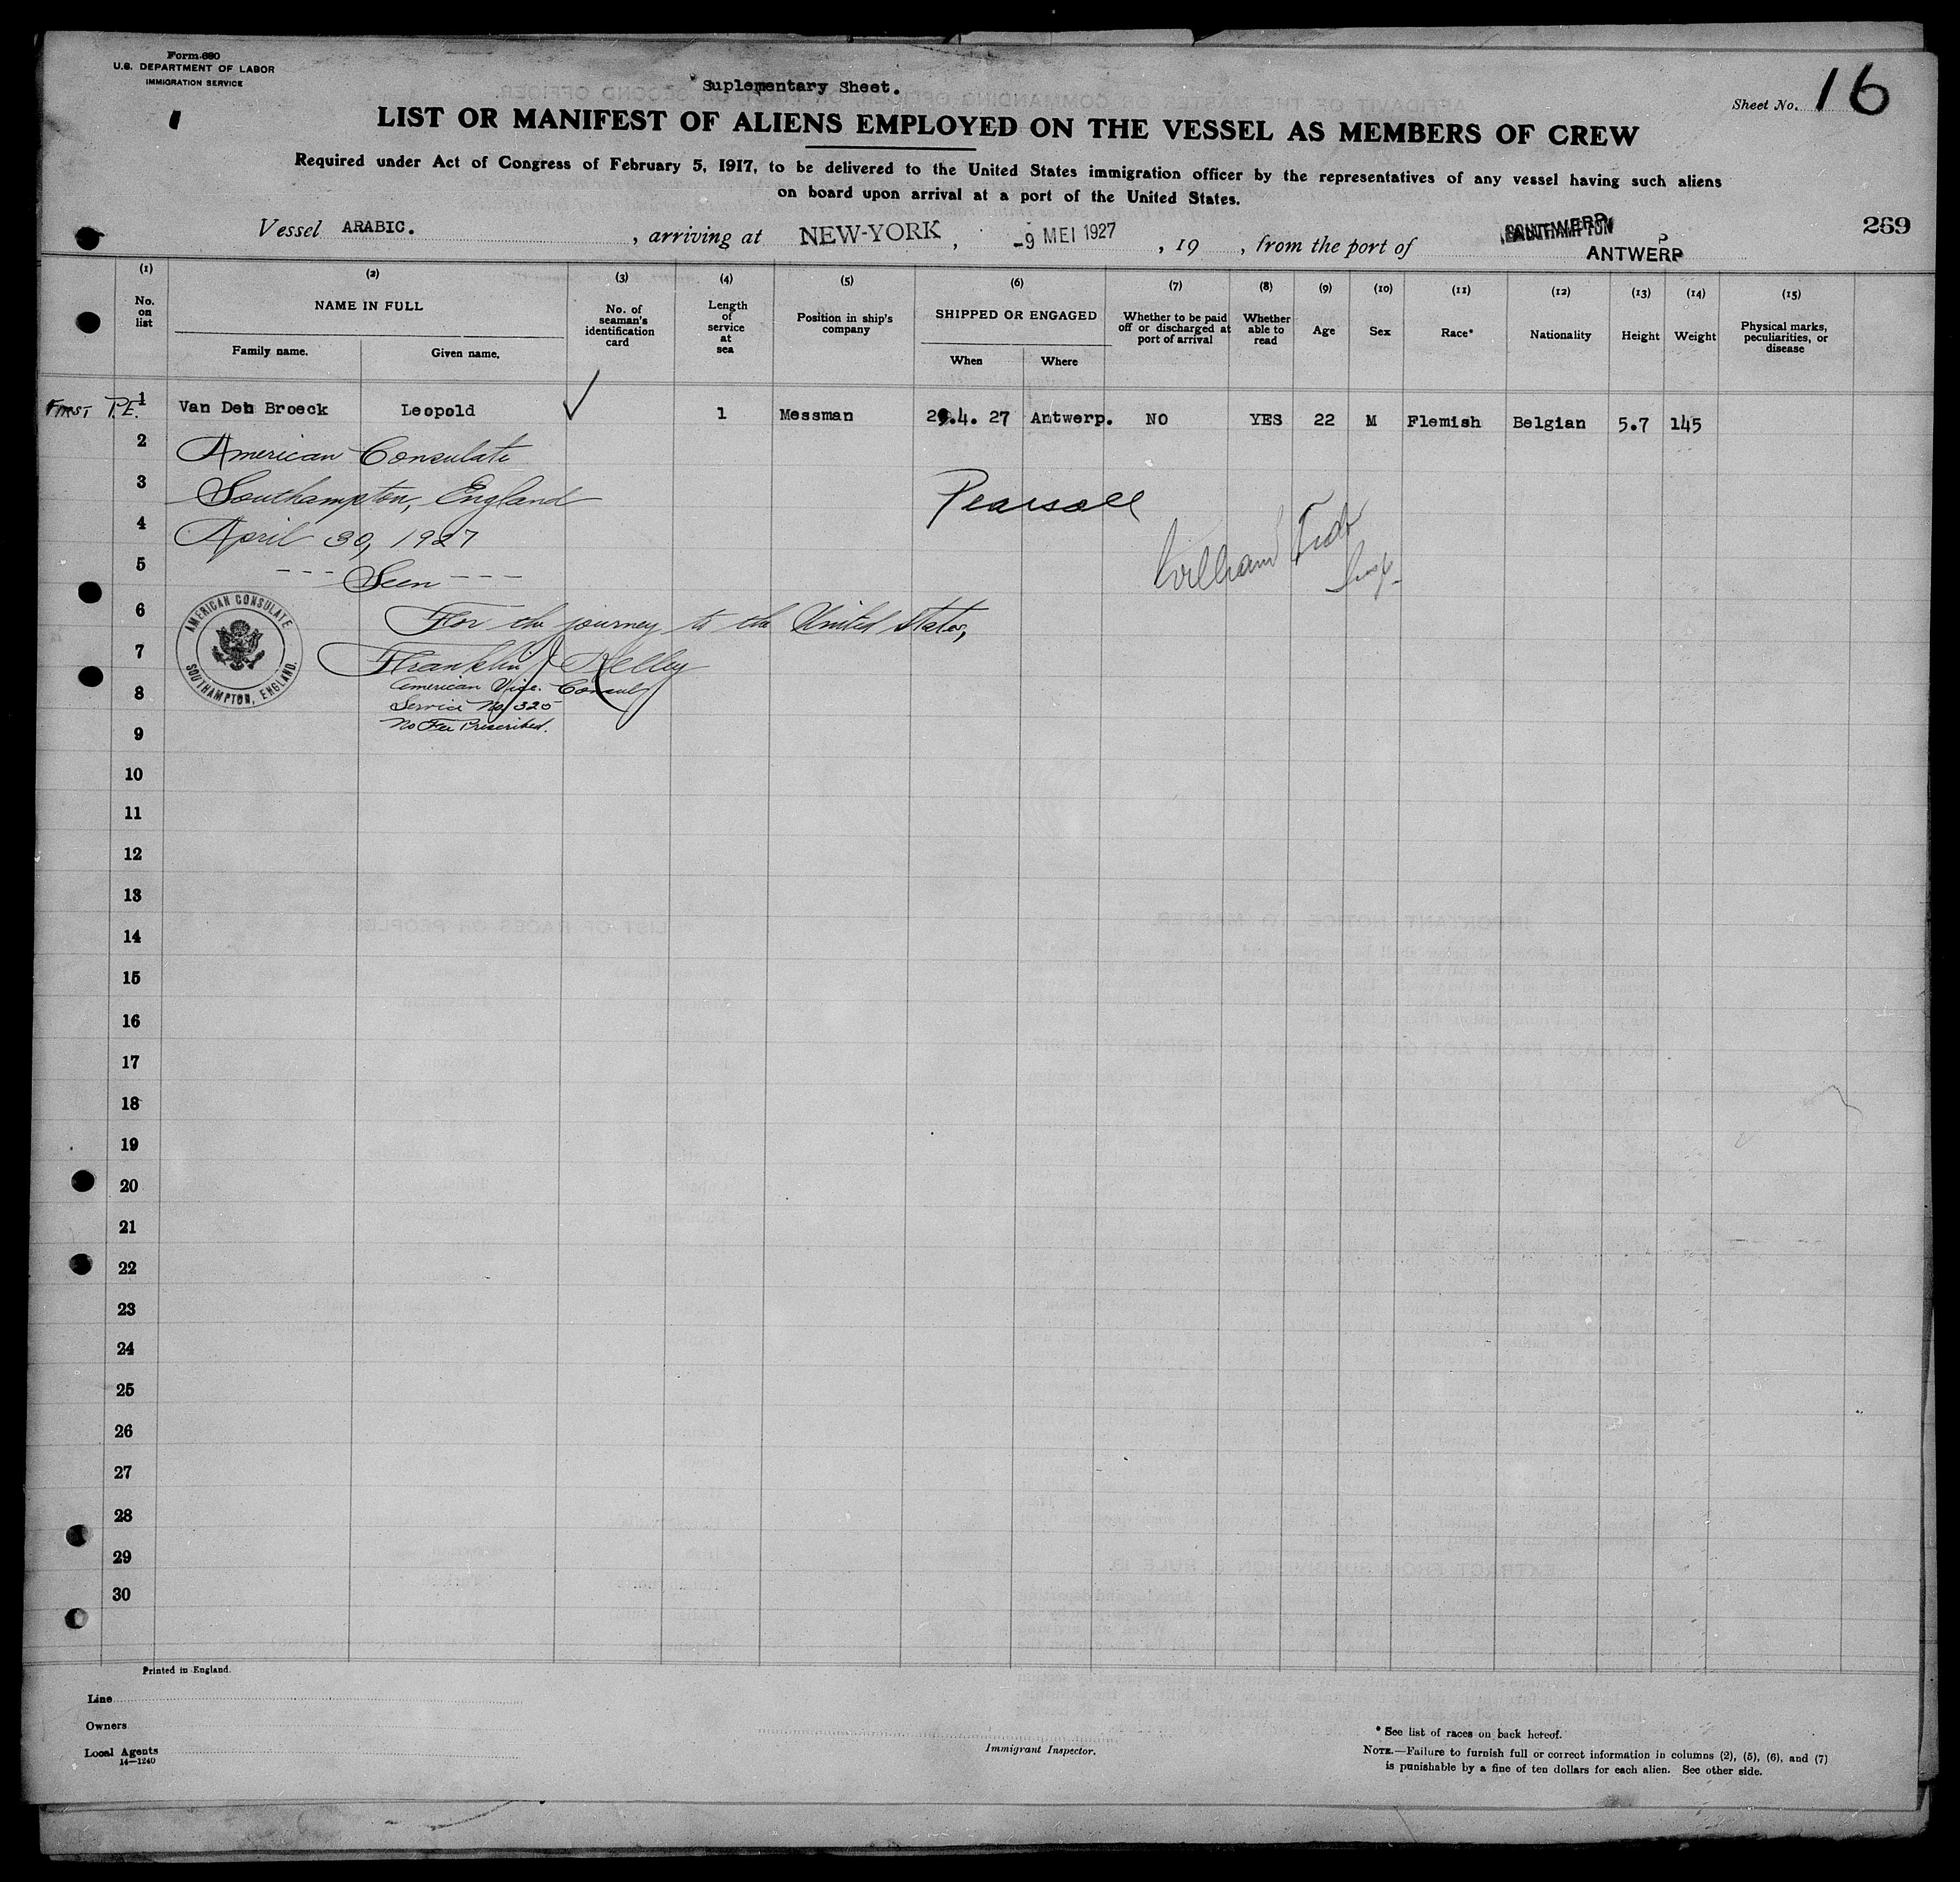 Form 680
U.S. DEPARTMENT OF LABOR
IMMIGRATION SERVICE
Suplementary Sheet.
Sheet No. 16
LIST OR MANIFEST OF ALIENS EMPLOYED ON THE VESSEL AS MEMBERS OF CREW
Required under Act of Congress of February 5, 1917, to be delivered to the United States immigration officer by the representatives of any vessel having such aliens
on board upon arrival at a port of the United States.
Vessel ARABIC. , arriving at NEW-YORK , -9 MEI 1927 , 19 , from the port of ANTWERP
269
(1) (2) (3) (4) (5) (6) (7) (8) (9) (10) (11) (12) (13) (14) (15)
No. on list
NAME IN FULL
Family name. Given name.
No. of seaman's identification card
Length of service at sea
Position in ship's company
SHIPPED OR ENGAGED
When Where
Whether to be paid off or discharged at port of arrival
Whether able to read
Age
Sex
Race*
Nationality
Height
Weight
Physical marks, peculiarities, or disease
FIRST P.E. 1 Van Den Broeck Leopold ✓ 1 Messman 29.4. 27 Antwerp. NO YES 22 M Flemish Belgian 5.7 145
2 American Consulate
3 Southampton, England
Pearsall
4 April 30, 1927
William
5 --- Seen ---
Insp.
AMERICAN CONSULATE
SOUTHAMPTON, ENGLAND.
6 For the journey to the United States,
7 Franklin Kelley
8 American Vice. Consul
Service No. 325
No Fee Prescribed.
9
10
11
12
13
14
15
16
17
18
19
20
21
22
23
24
25
26
27
28
29
30
Printed in England.
Line
Owners
Local Agents
14—1240
Immigrant Inspector.
* See list of races on back hereof.
NOTE.—Failure to furnish full or correct information in columns (2), (5), (6), and (7)
is punishable by a fine of ten dollars for each alien. See other side.